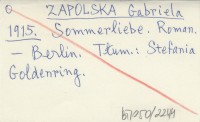 ZAPOLSKA Gabriela
1915. Sommerliebe. Roman.
— Berlin. Tłum.: Stefania
Goldenring.